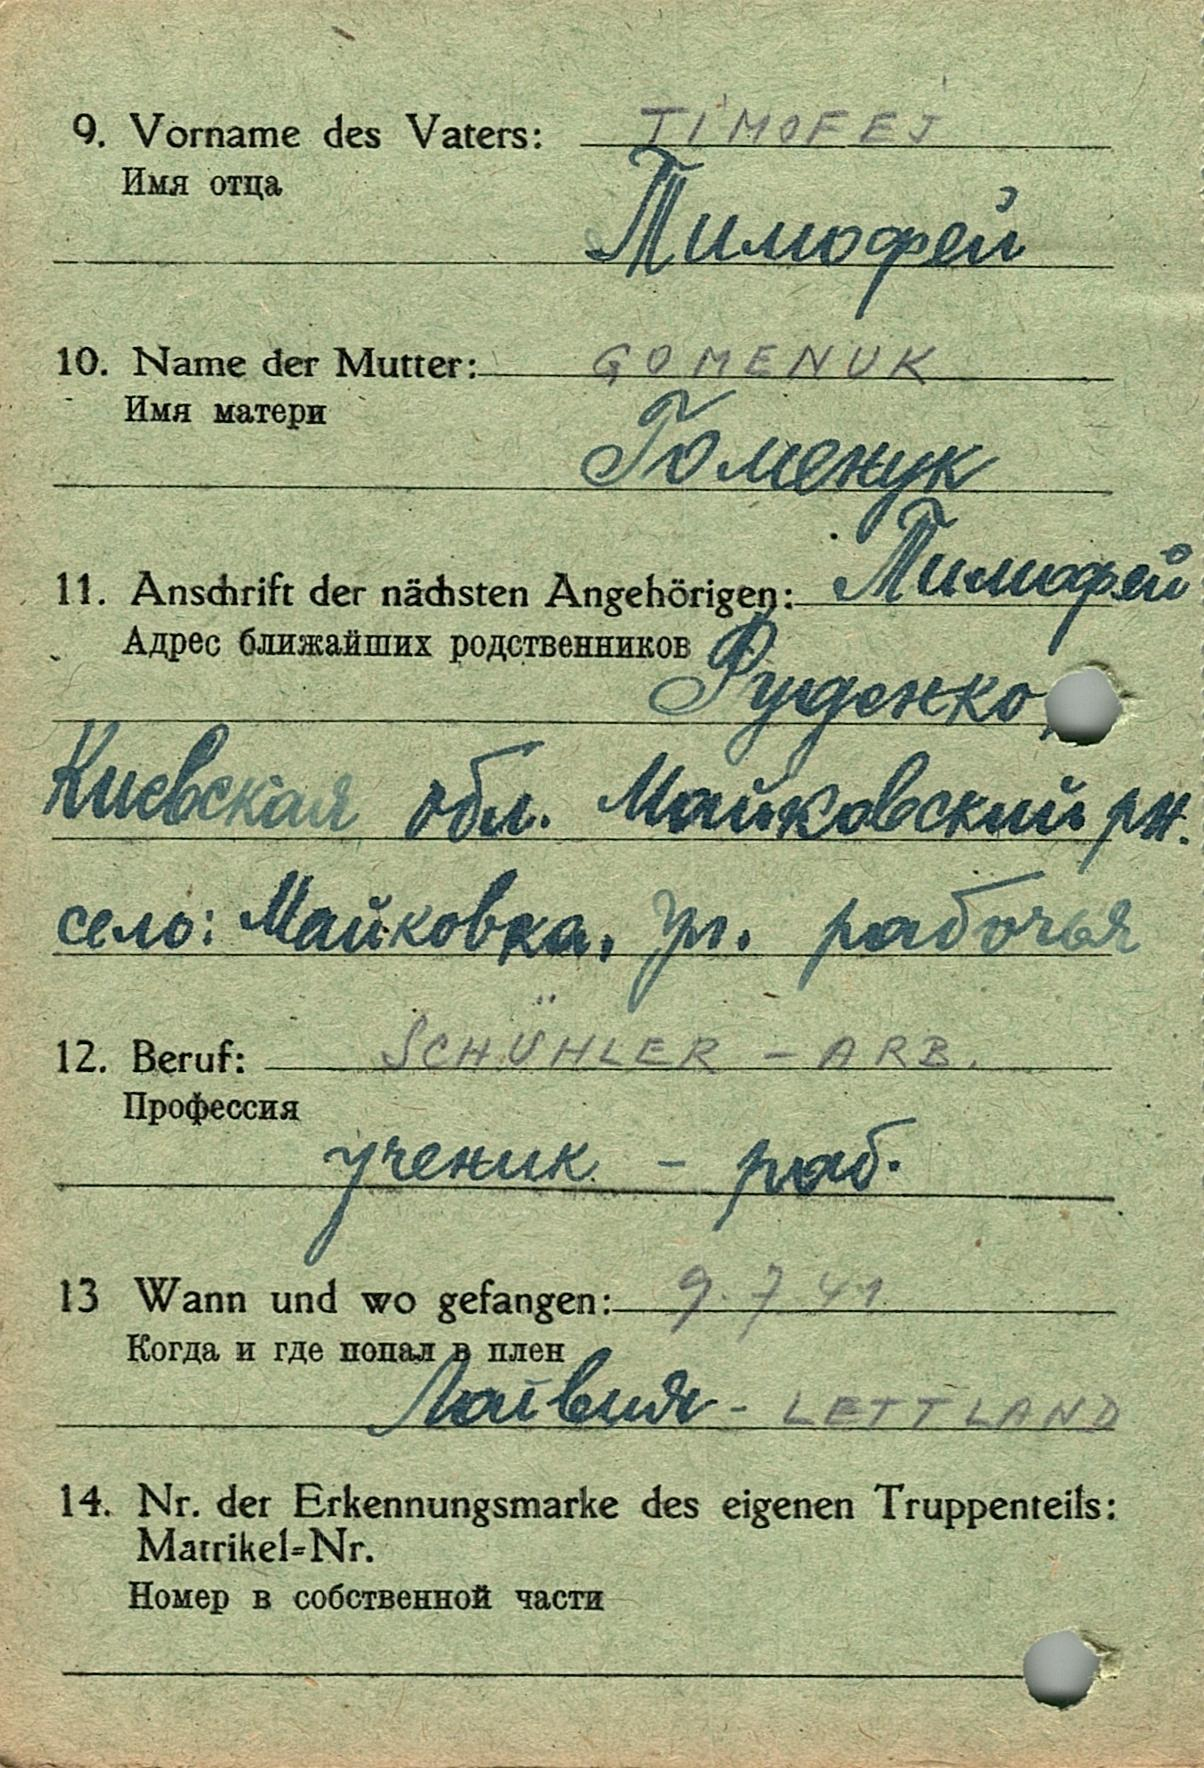 9. Vorname des Vaters: TIMOFEJ
Имя отца
Тимофей
10. Name der Mutter: GOMENUK
Имя матери
Гоменук
11. Anschrift der nächsten Angehörigen: Тимофей
Адрес ближайших родственников Руденко,
Киевская обл. Майковский рн.
село: Майковка, ул. рабочья
12. Beruf: SCHÜHLER – ARB.
Профессия
ученик – раб.
13 Wann und wo gefangen: 9.7.41
Когда и где попал в плен
Латвия - LETTLAND
14. Nr. der Erkennungsmarke des eigenen Truppenteils:
Matrikel-Nr.
Номер в собственной части